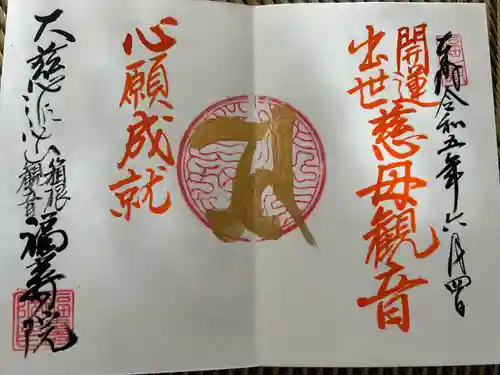 奉拝 令和五年六月四日
開運
出世慈母観音
心願成就
大慈悲
箱根
観音
福寿院